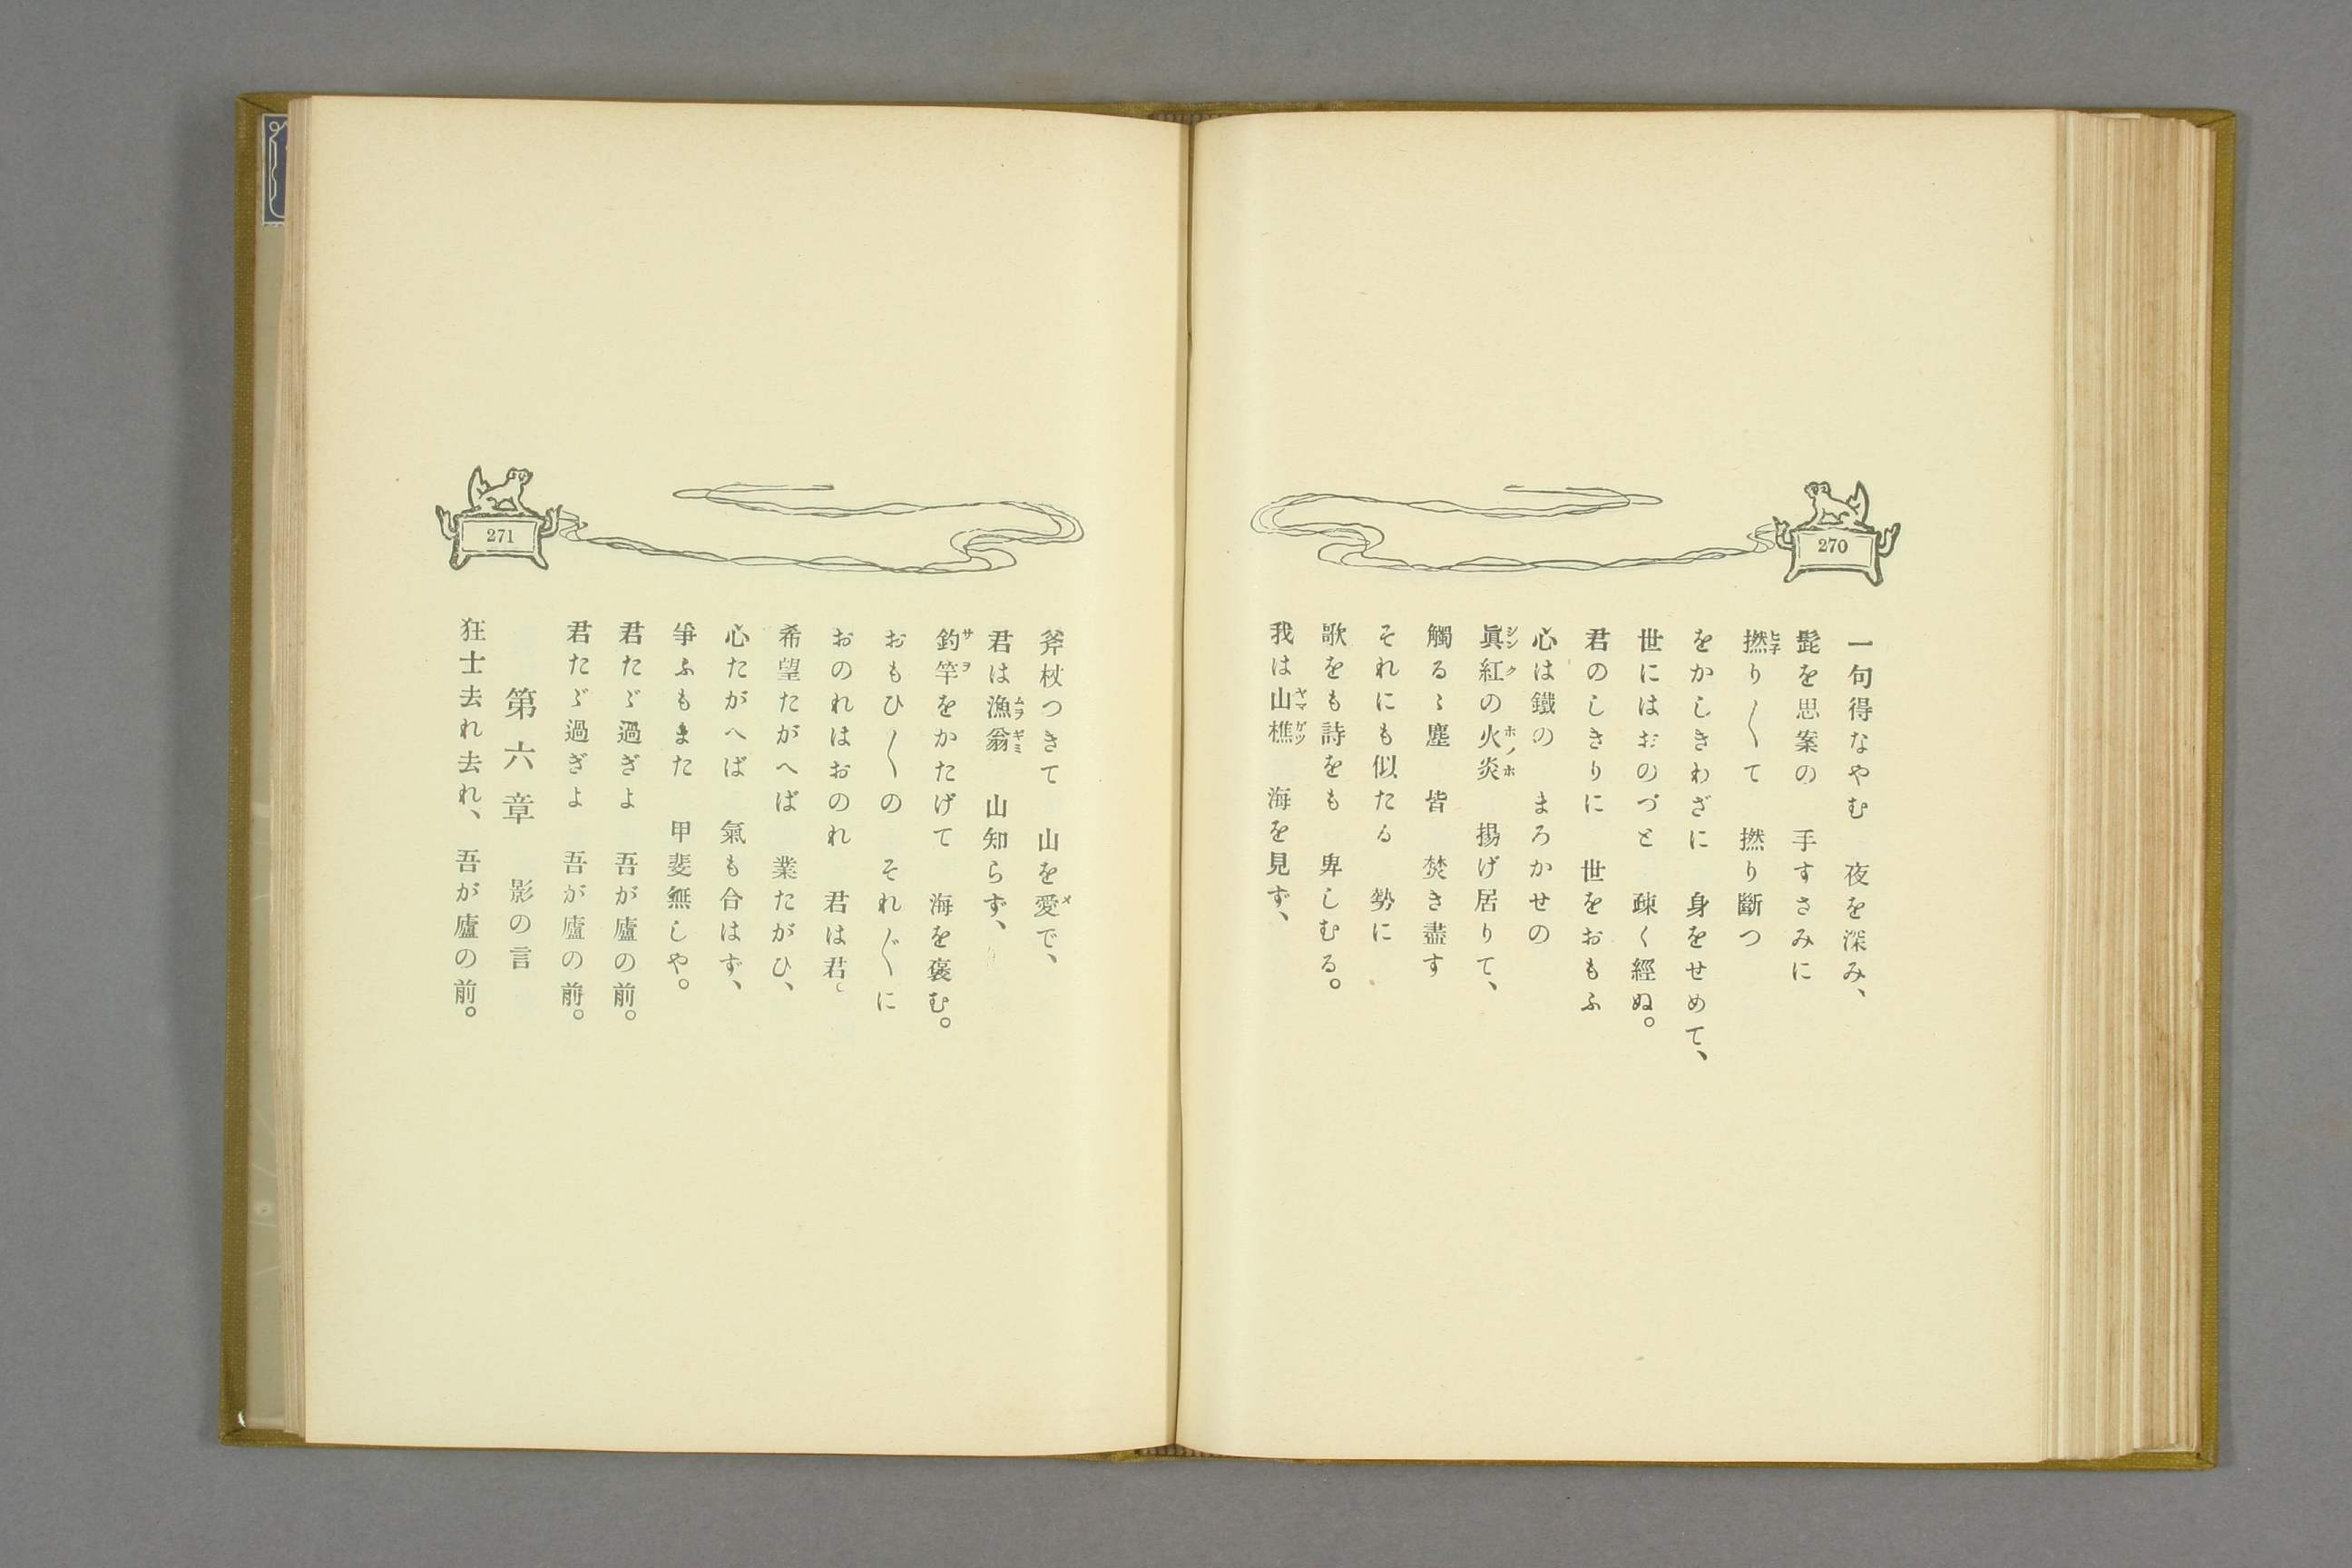 270
一句得なやむ　夜を深み、
髭を思案の　手すさみに
撚り〳〵て　撚り斷つ
をかしきわざに　身をせめて、
世にはおのづと　疎く經ぬ。
君のしきりに　世をおもふ
心は鐵の　まろかせの
眞紅の火炎　揚げ居りて、
觸るゝ塵　皆　焚き盡す
それにも似たる　勢に
歌をも詩をも　卑しむる。
我は山樵　海を見ず、
271
斧杖つきて　山を愛で、
君は漁翁　山知らず、
釣竿をかたげて　海を褒む。
おもひ〳〵の　それ〴〵に
おのれはおのれ　君は君。
希望たがへば　業たがひ、
心たがへば　氣も合はず、
爭ふもまた　甲斐無しや。
君たゞ過ぎよ　吾が廬の前。
君たゞ過ぎよ　吾が廬の前。
第六章　影の言
狂士去れ去れ、吾が廬の前。